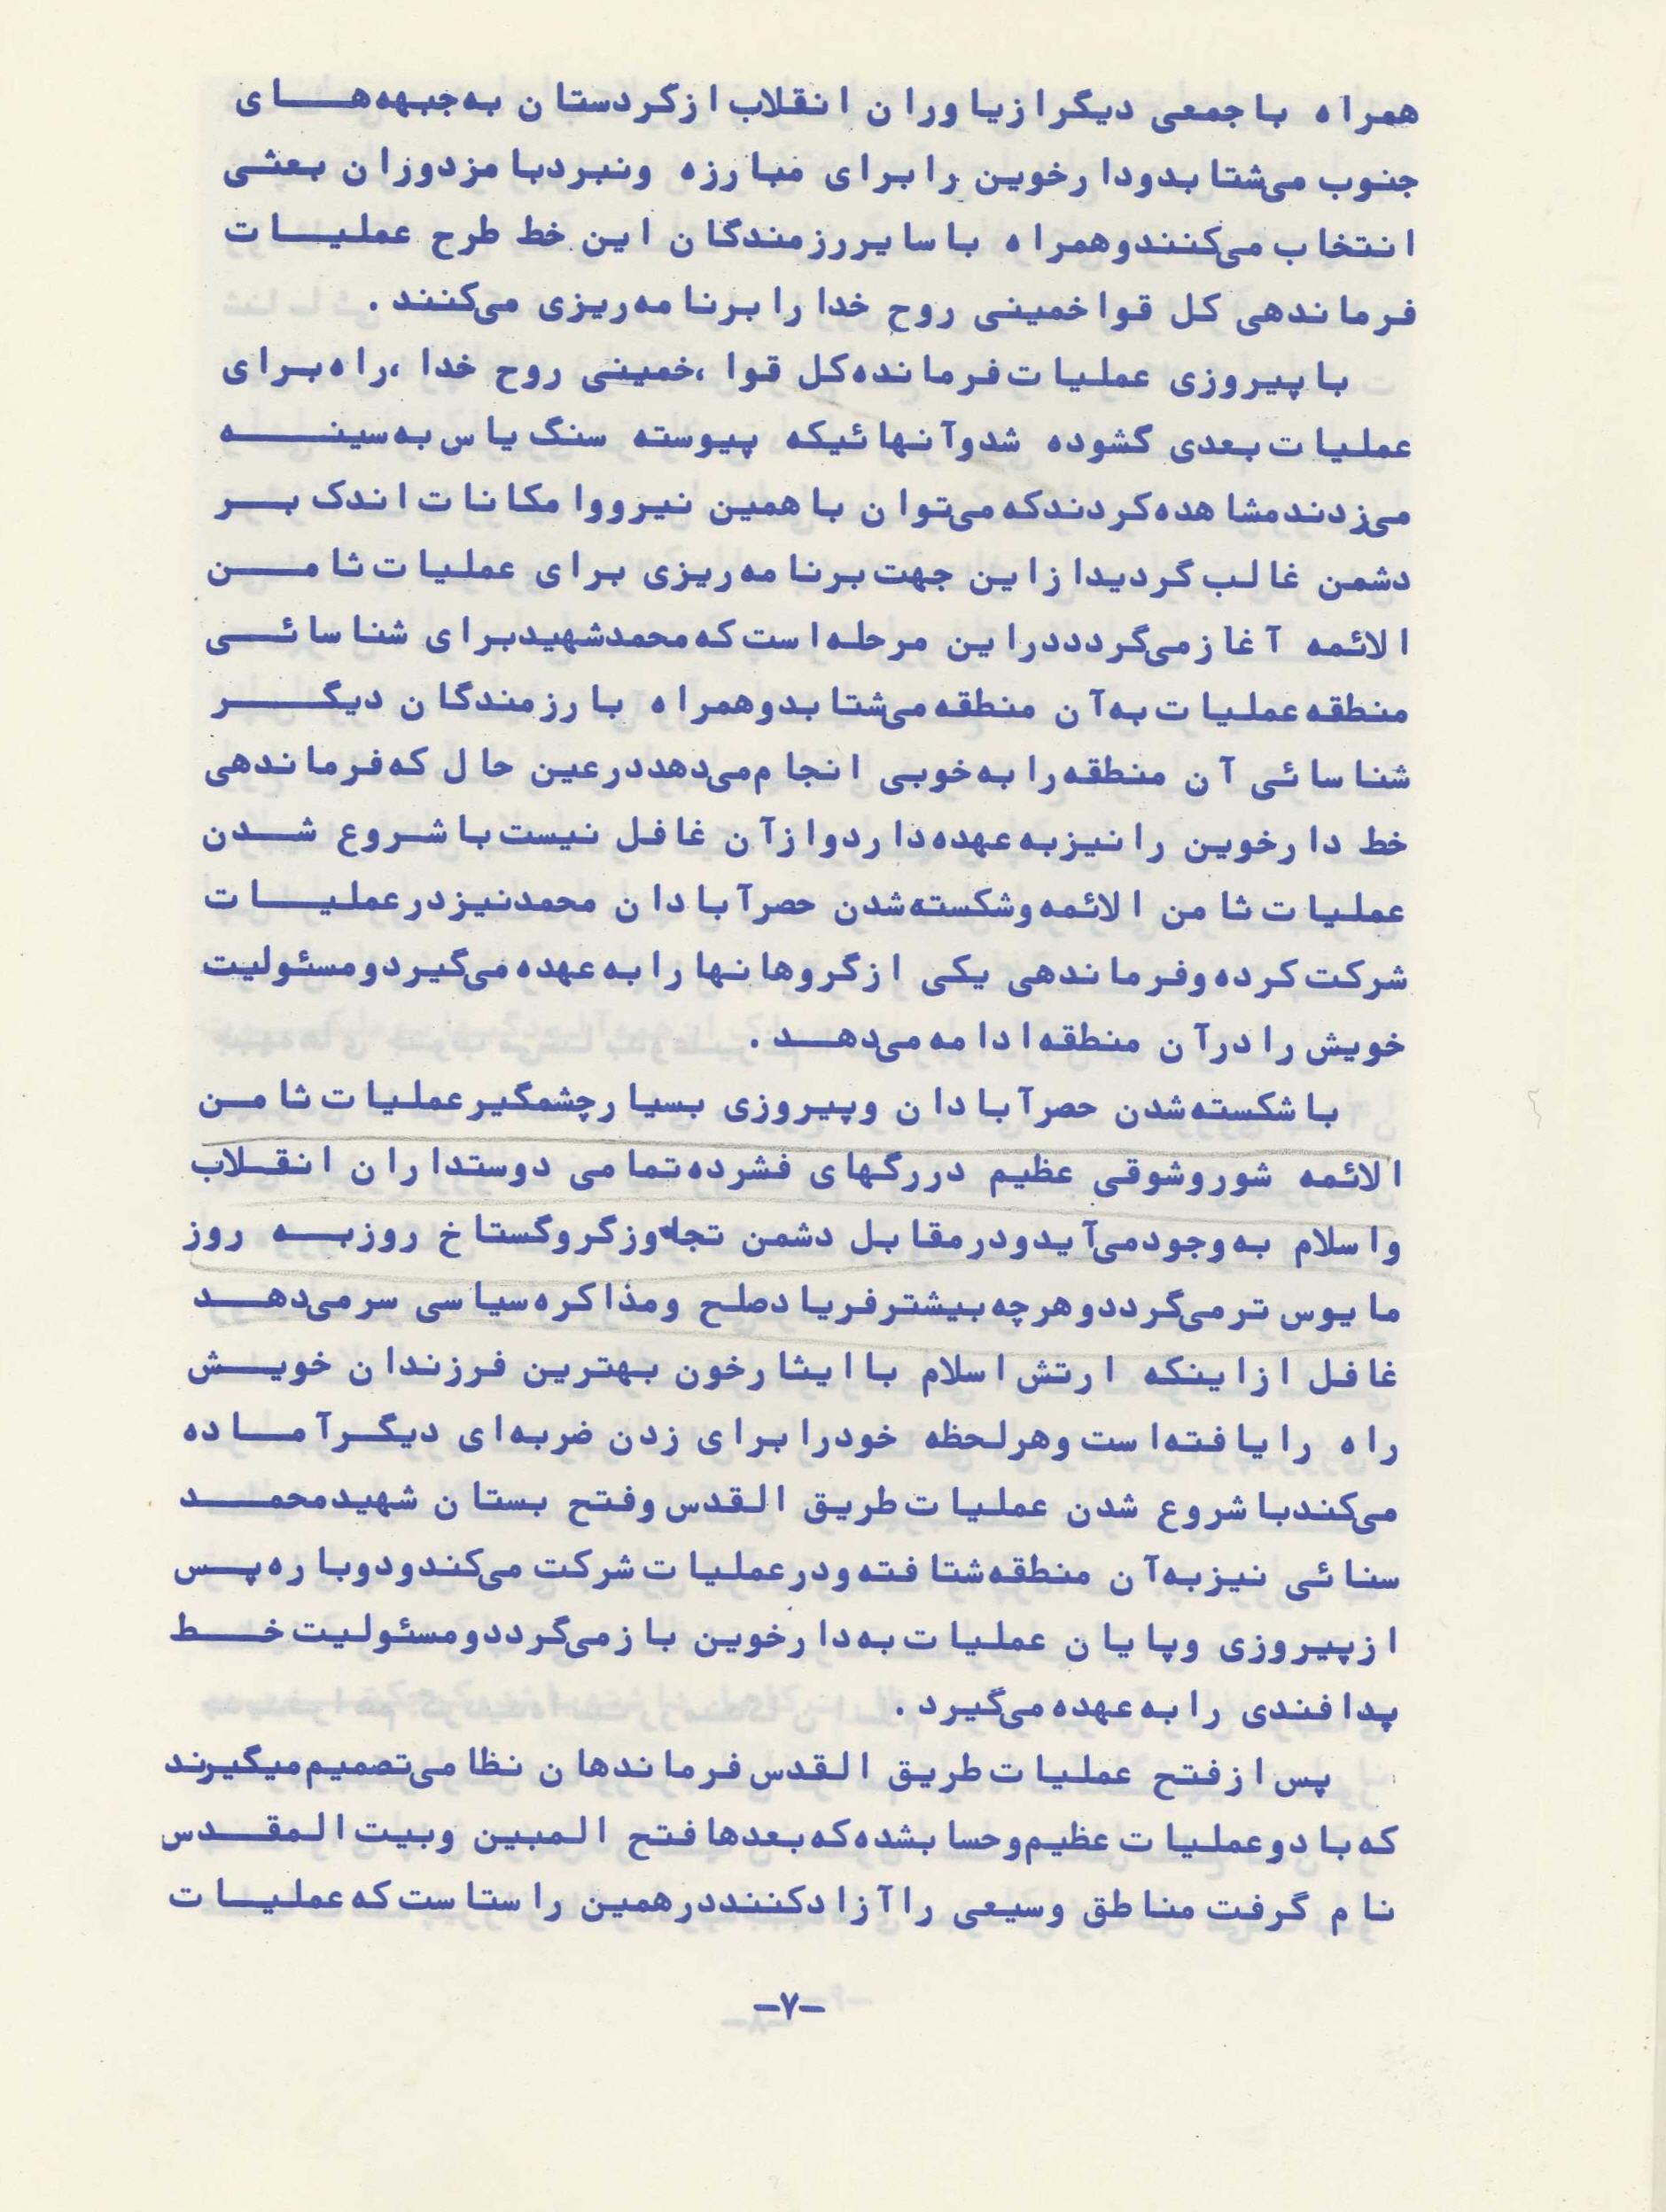 همراه باجمعی دیگرازیاوران انقلاب ازکردستان به‌جبهه‌های
جنوب می‌شتابدودارخوین رابرای مبارزه ونبردبا مزدوران بعثی
انتخاب می‌کنندوهمراه باسایررزمندگان این خط طرح عملیات
فرماندهی کل قواخمینی روح خدا رابرنامه‌ریزی می‌کنند .
باپیروزی عملیات فرمانده‌کل قوا ،خمینی روح خدا ،راه‌برای
عملیات بعدی گشوده شدوآنهائیکه پیوسته سنگ یاس به‌سینه
می‌زدندمشاهده‌کردندکه می‌توان باهمین نیرووامکانات اندک بر
دشمن غالب گردیدازاین جهت برنامه‌ریزی برای عملیات ثامن
الائمه آغازمی‌گردددراین مرحله‌است که محمدشهیدبرای شناسائی
منطقه عملیات به‌آن منطقه می‌شتابدوهمراه بارزمندگان دیگر
شناسائی آن منطقه‌رابه‌خوبی انجام‌می‌دهددرعین حال که‌فرماندهی
خط دارخوین رانیزبه عهده‌داردوازآن غافل نیست باشروع شدن
عملیات ثامن الائمه وشکسته‌شدن حصرآبادان محمدنیزدرعملیات
شرکت کرده وفرماندهی یکی ازگروهانهارابه عهده می‌گیردومسئولیت
خویش رادرآن منطقه‌ادامه می‌دهد .
باشکسته‌شدن حصرآبادان وپیروزی بسیارچشمگیرعملیات ثامن
الائمه شوروشوقی عظیم دررگهای فشرده‌تمامی دوستداران انقلاب
واسلام به وجودمی‌آیدودرمقابل دشمن تجاوزگروگستاخ روزبه روز
مایوس ترمی‌گرددوهرچه بیشترفریادصلح ومذاکره‌سیاسی سرمی‌دهد
غافل ازاینکه ارتش اسلام باایثارخون بهترین فرزندان خویش
راه رایافته‌است وهرلحظه خودرابرای زدن ضربه‌ای دیگرآماده
می‌کندباشروع شدن عملیات طریق القدس وفتح بستان شهیدمحمد
سنائی نیزبه‌آن منطقه‌شتافته ودرعملیات شرکت می‌کندودوباره‌پس
ازپیروزی وپایان عملیات به‌دارخوین بازمی‌گرددومسئولیت خط
پدافندی رابه عهده می‌گیرد .
پس ازفتح عملیات طریق القدس فرماندهان نظامی‌تصمیم‌میگیرند
که بادوعملیات عظیم‌وحسابشده‌که بعدهافتح المبین وبیت المقدس
نام گرفت مناطق وسیعی راآزادکننددرهمین راستاست که عملیات
–۷–